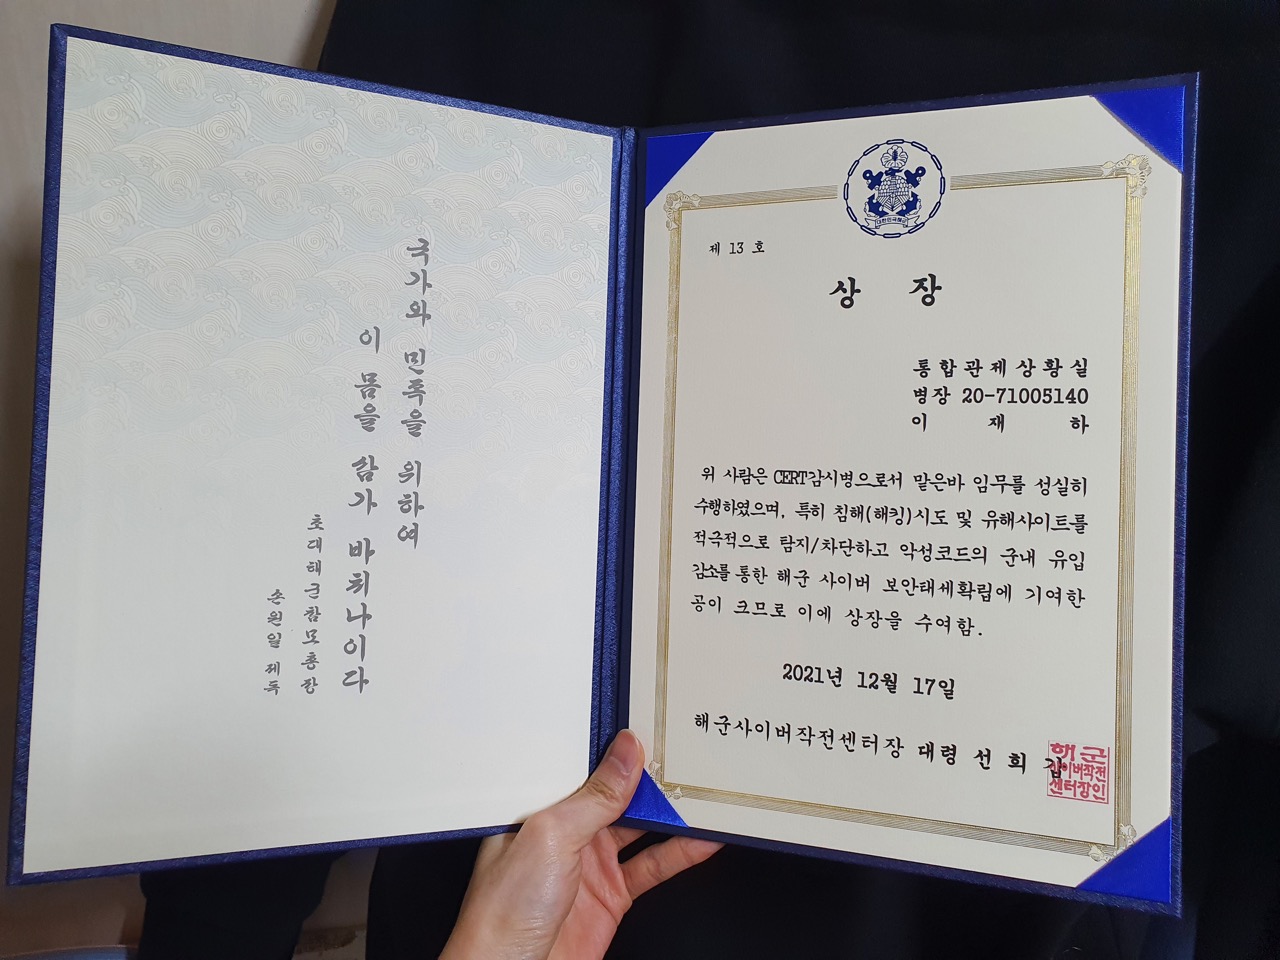 국가와 민족을 위하여
이 몸을 삼가 바치나이다
초대해군참모총장
손원일 제독
대한민국해군
제 13 호
상 장
통합관제상황실
병장 20-71005140
이 재 하
위 사람은 CERT감시병으로서 맡은바 임무를 성실히
수행하였으며, 특히 침해(해킹)시도 및 유해사이트를
적극적으로 탐지/차단하고 악성코드의 군내 유입
감소를 통한 해군 사이버 보안태세확립에 기여한
공이 크므로 이에 상장을 수여함.
2021년 12월 17일
해군사이버작전센터장 대령 선 희 갑
해군
사이버작전
센터장인